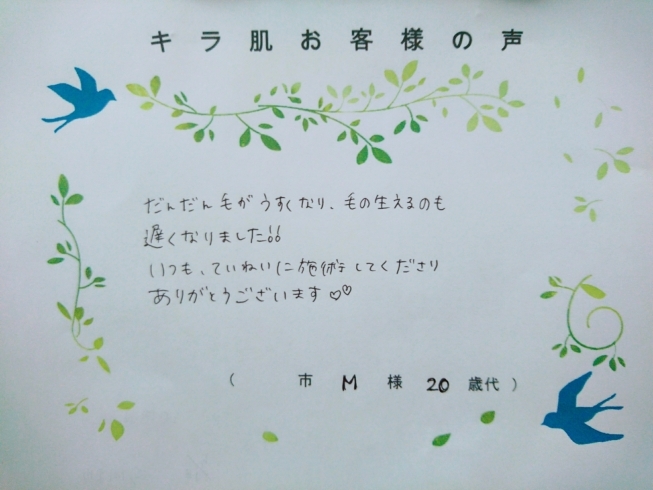 キラ肌お客様の声
だんだん毛がうすくなり、毛の生えるのも
遅くなりました!!
いつも、ていねいに施術してくださり
ありがとうございます♡♡
（　　市 M 様 20 歳代）